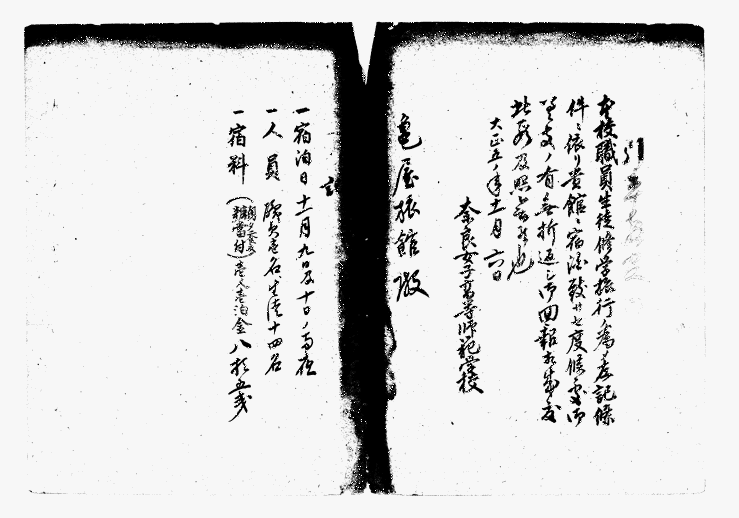 本校職員生徒修学旅行ノ為左記條
件ニ依リ貴館ニ宿泊致サセ度候處御
差支ノ有無折返シ御回報相成度
此段及照会候也
大正五年十一月六日
奈良女子高等師範学校
亀屋旅館 殿
記
一 宿泊日 十一月九日及十日ノ両夜
一 人員 職員壱名生徒十四名
一 宿料 (辨當付)壱人壱泊金八拾五銭